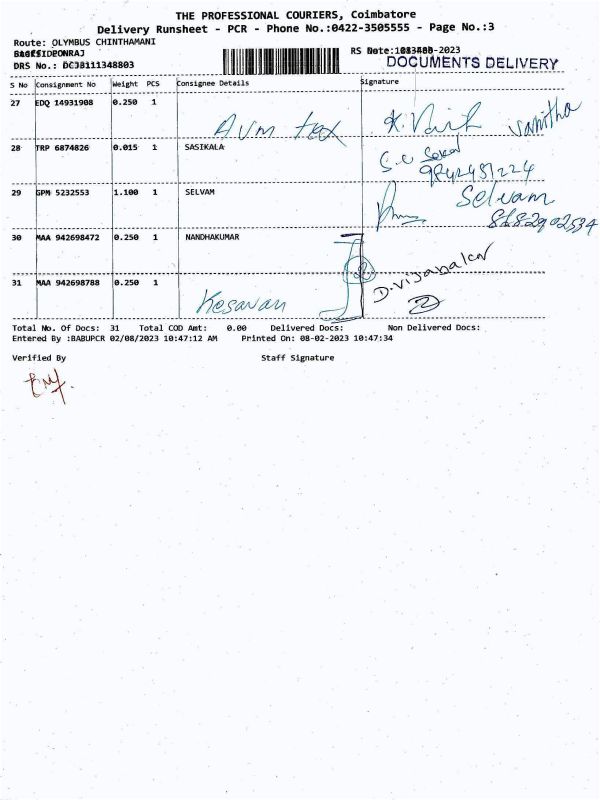 THE PROFESSIONAL COURIERS, Coimbatore
Delivery Runsheet - PCR - Phone No.:0422-3505555 - Page No.:3
Route: OLYMBUS CHINTHAMANI
RS Date: -2023
DRS No.: DCJB111348803
DOCUMENTS DELIVERY
S No Consignment No Weight PCS Consignee Details Signature
27 EDQ 14931908 0.250 1 Avm tex K. Vanitha
28 TRP 6874826 0.015 1 SASIKALA
9842451224
29 GPM 5232553 1.100 1 SELVAM Selvam
8682902534
30 MAA 942698472 0.250 1 NANDHAKUMAR
31 MAA 942698788 0.250 1 Kesavan
Total No. Of Docs: 31 Total COD Amt: 0.00 Delivered Docs: Non Delivered Docs:
Entered By :BABUPCR 02/08/2023 10:47:12 AM Printed On: 08-02-2023 10:47:34
Verified By Staff Signature